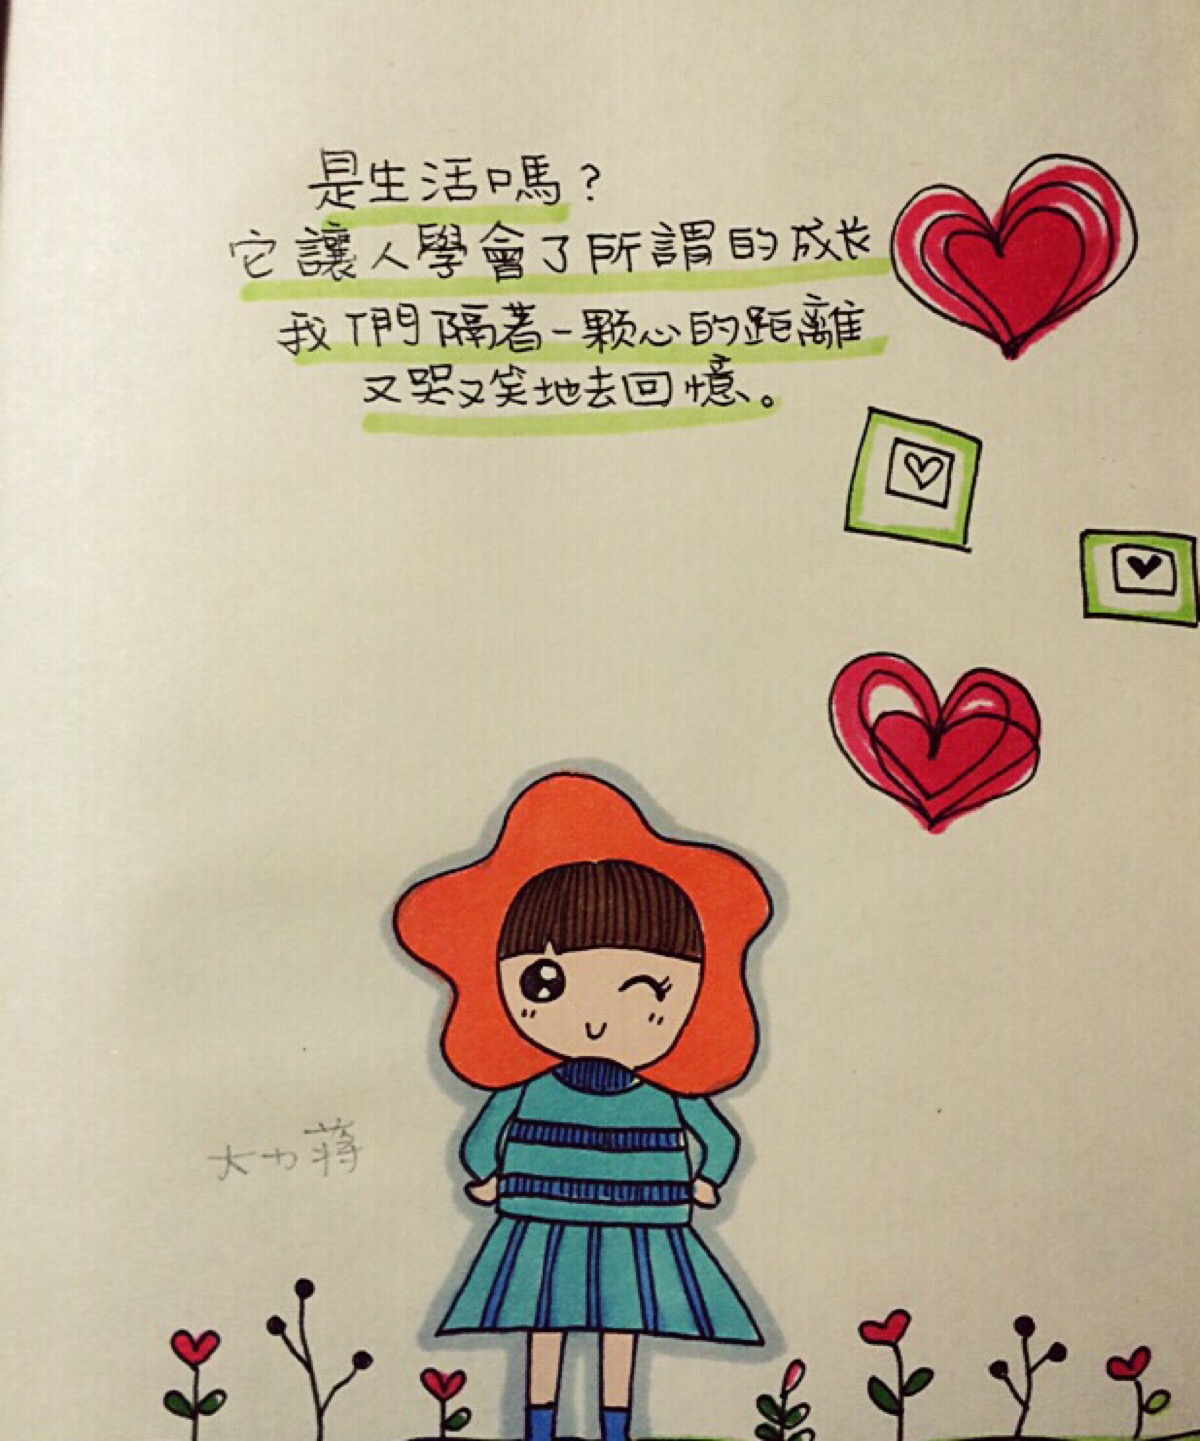 是生活嗎？
它讓人學會了所謂的成长
我們隔著一颗心的距離
又哭又笑地去回憶。
大力蒋